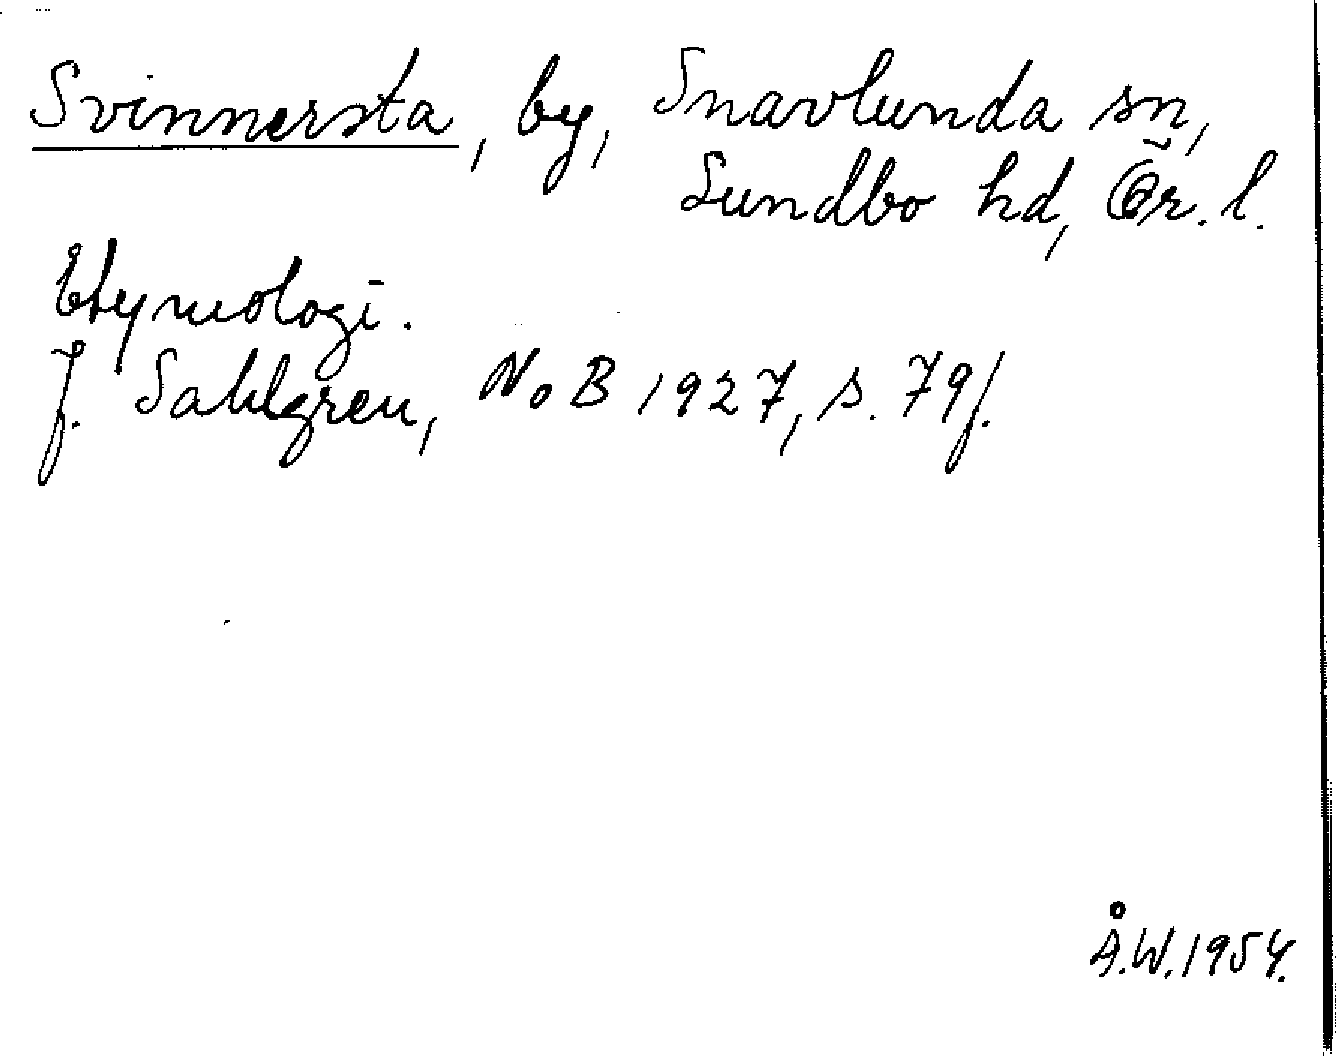 Svinnersta, by, Snavlunda sn,
Sundbo hd, Ör. l.
Etymologi.
J. Sahlgren, NoB 1927, s. 79f.
Å.W. 1954.